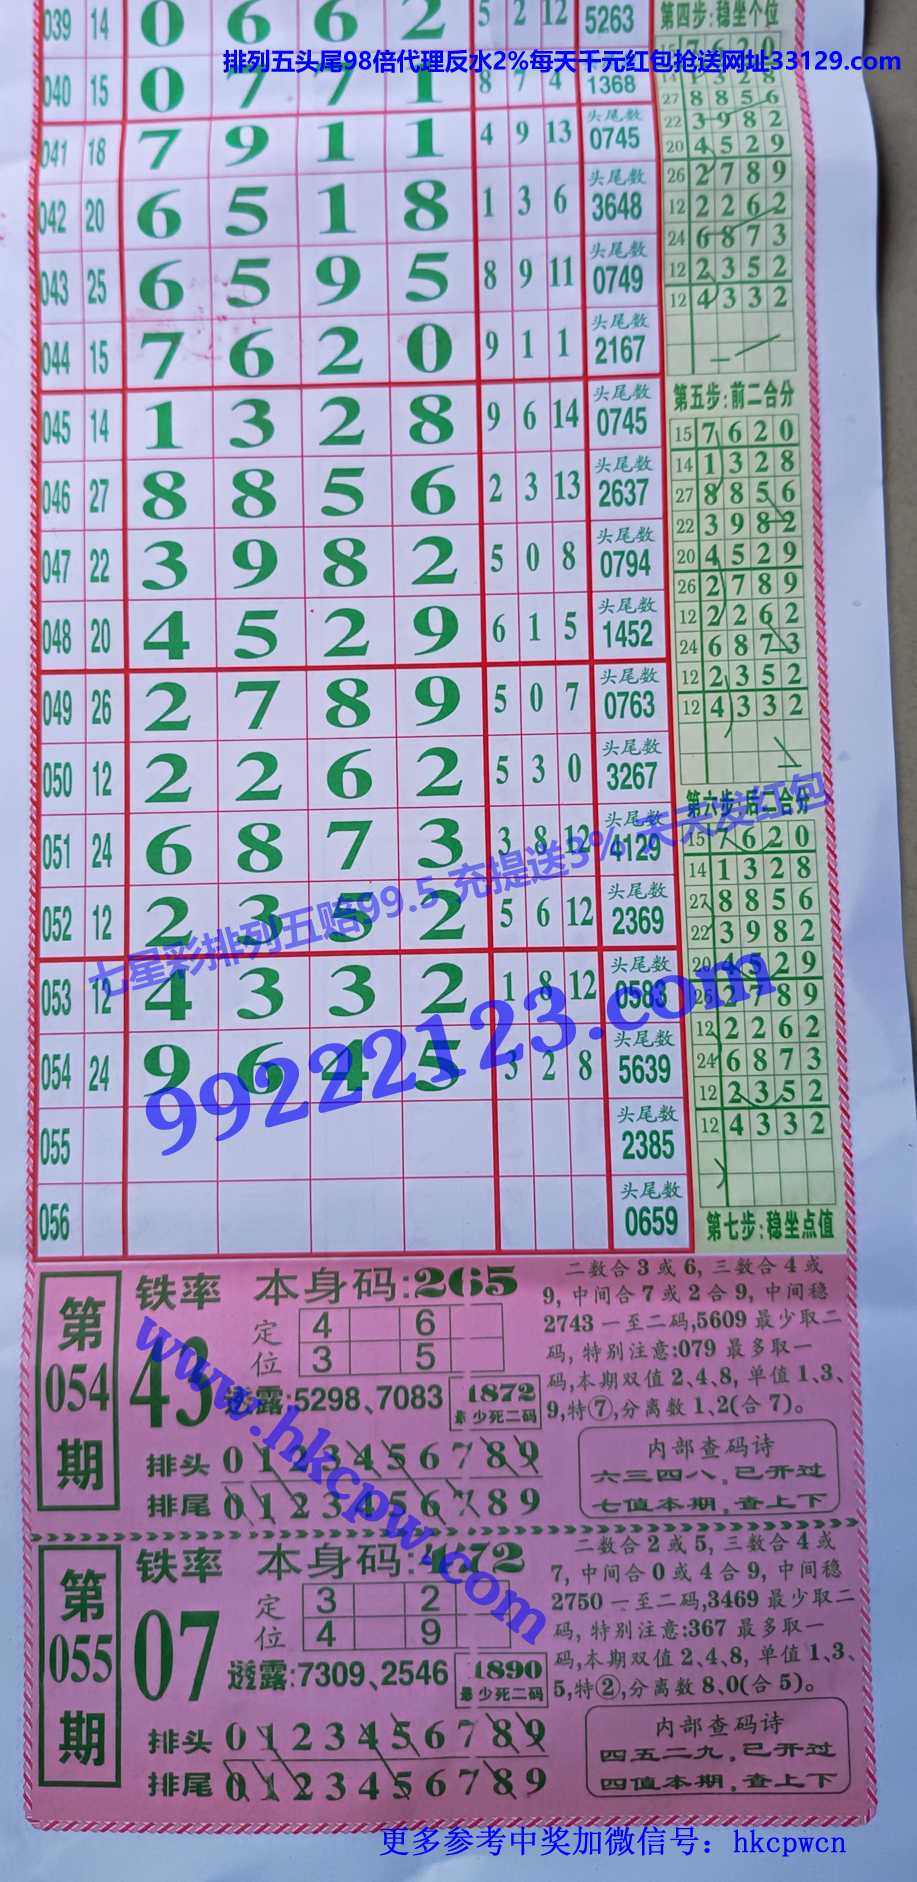 039 14 0 6 6 2 5 2 12 5263
排列五头尾98倍代理反水2%每天千元红包抢送网址33129.com
040 15 0 7 7 1 8 7 4 1368
041 18 7 9 1 1 4 9 13 头尾数 0745
042 20 6 5 1 8 1 3 6 头尾数 3648
043 25 6 5 9 5 8 9 11 头尾数 0749
044 15 7 6 2 0 9 1 1 头尾数 2167
045 14 1 3 2 8 9 6 14 头尾数 0745
046 27 8 8 5 6 2 3 13 头尾数 2637
047 22 3 9 8 2 5 0 8 头尾数 0794
048 20 4 5 2 9 6 1 5 头尾数 1452
049 26 2 7 8 9 5 0 7 头尾数 0763
050 12 2 2 6 2 5 3 0 头尾数 3267
051 24 6 8 7 3 3 8 12 头尾数 4129
052 12 2 3 5 2 5 6 12 头尾数 2369
053 12 4 3 3 2 1 8 12 头尾数 0583
054 24 9 6 4 5 3 2 8 头尾数 5639
055 头尾数 2385
056 头尾数 0659
第四步:稳坐个位
7 6 2 0
27 8 8 5 6
22 3 9 8 2
20 4 5 2 9
26 2 7 8 9
12 2 2 6 2
24 6 8 7 3
12 2 3 5 2
12 4 3 3 2
第五步:前二合分
15 7 6 2 0
14 1 3 2 8
27 8 8 5 6
22 3 9 8 2
20 4 5 2 9
26 2 7 8 9
12 2 2 6 2
24 6 8 7 3
12 2 3 5 2
12 4 3 3 2
第六步:后二合分
15 7 6 2 0
14 1 3 2 8
27 8 8 5 6
22 3 9 8 2
20 4 5 2 9
26 2 7 8 9
12 2 2 6 2
24 6 8 7 3
12 2 3 5 2
12 4 3 3 2
第七步:稳坐点值
七星彩排列五赔99.5 充提送3% 天天发红包
99222123.com
第054期
铁率 43
本身码:265
定位
4 6
3 5
透露:5298、7083
1872
最少死二码
排头 0 1 2 3 4 5 6 7 8 9
排尾 0 1 2 3 4 5 6 7 8 9
二数合3或6,三数合4或
9,中间合7或2合9,中间稳
2743一至二码,5609最少取二
码,特别注意:079最多取一
码,本期双值2、4、8,单值1、3、
9,特⑦,分离数1、2(合7)。
内部查码诗
六三四八,已开过
七值本期,查上下
www.hkcpw.com
第055期
铁率 07
本身码:472
定位
3 2
4 9
透露:7309、2546
1890
最少死二码
排头 0 1 2 3 4 5 6 7 8 9
排尾 0 1 2 3 4 5 6 7 8 9
二数合2或5,三数合4或
7,中间合0或4合9,中间稳
2750一至二码,3469最少取二
码,特别注意:367最多取一
码,本期双值2、4、8,单值1、3、
5,特②,分离数8、0(合5)。
内部查码诗
四五二九,已开过
四值本期,查上下
更多参考中奖加微信号：hkcpwcn